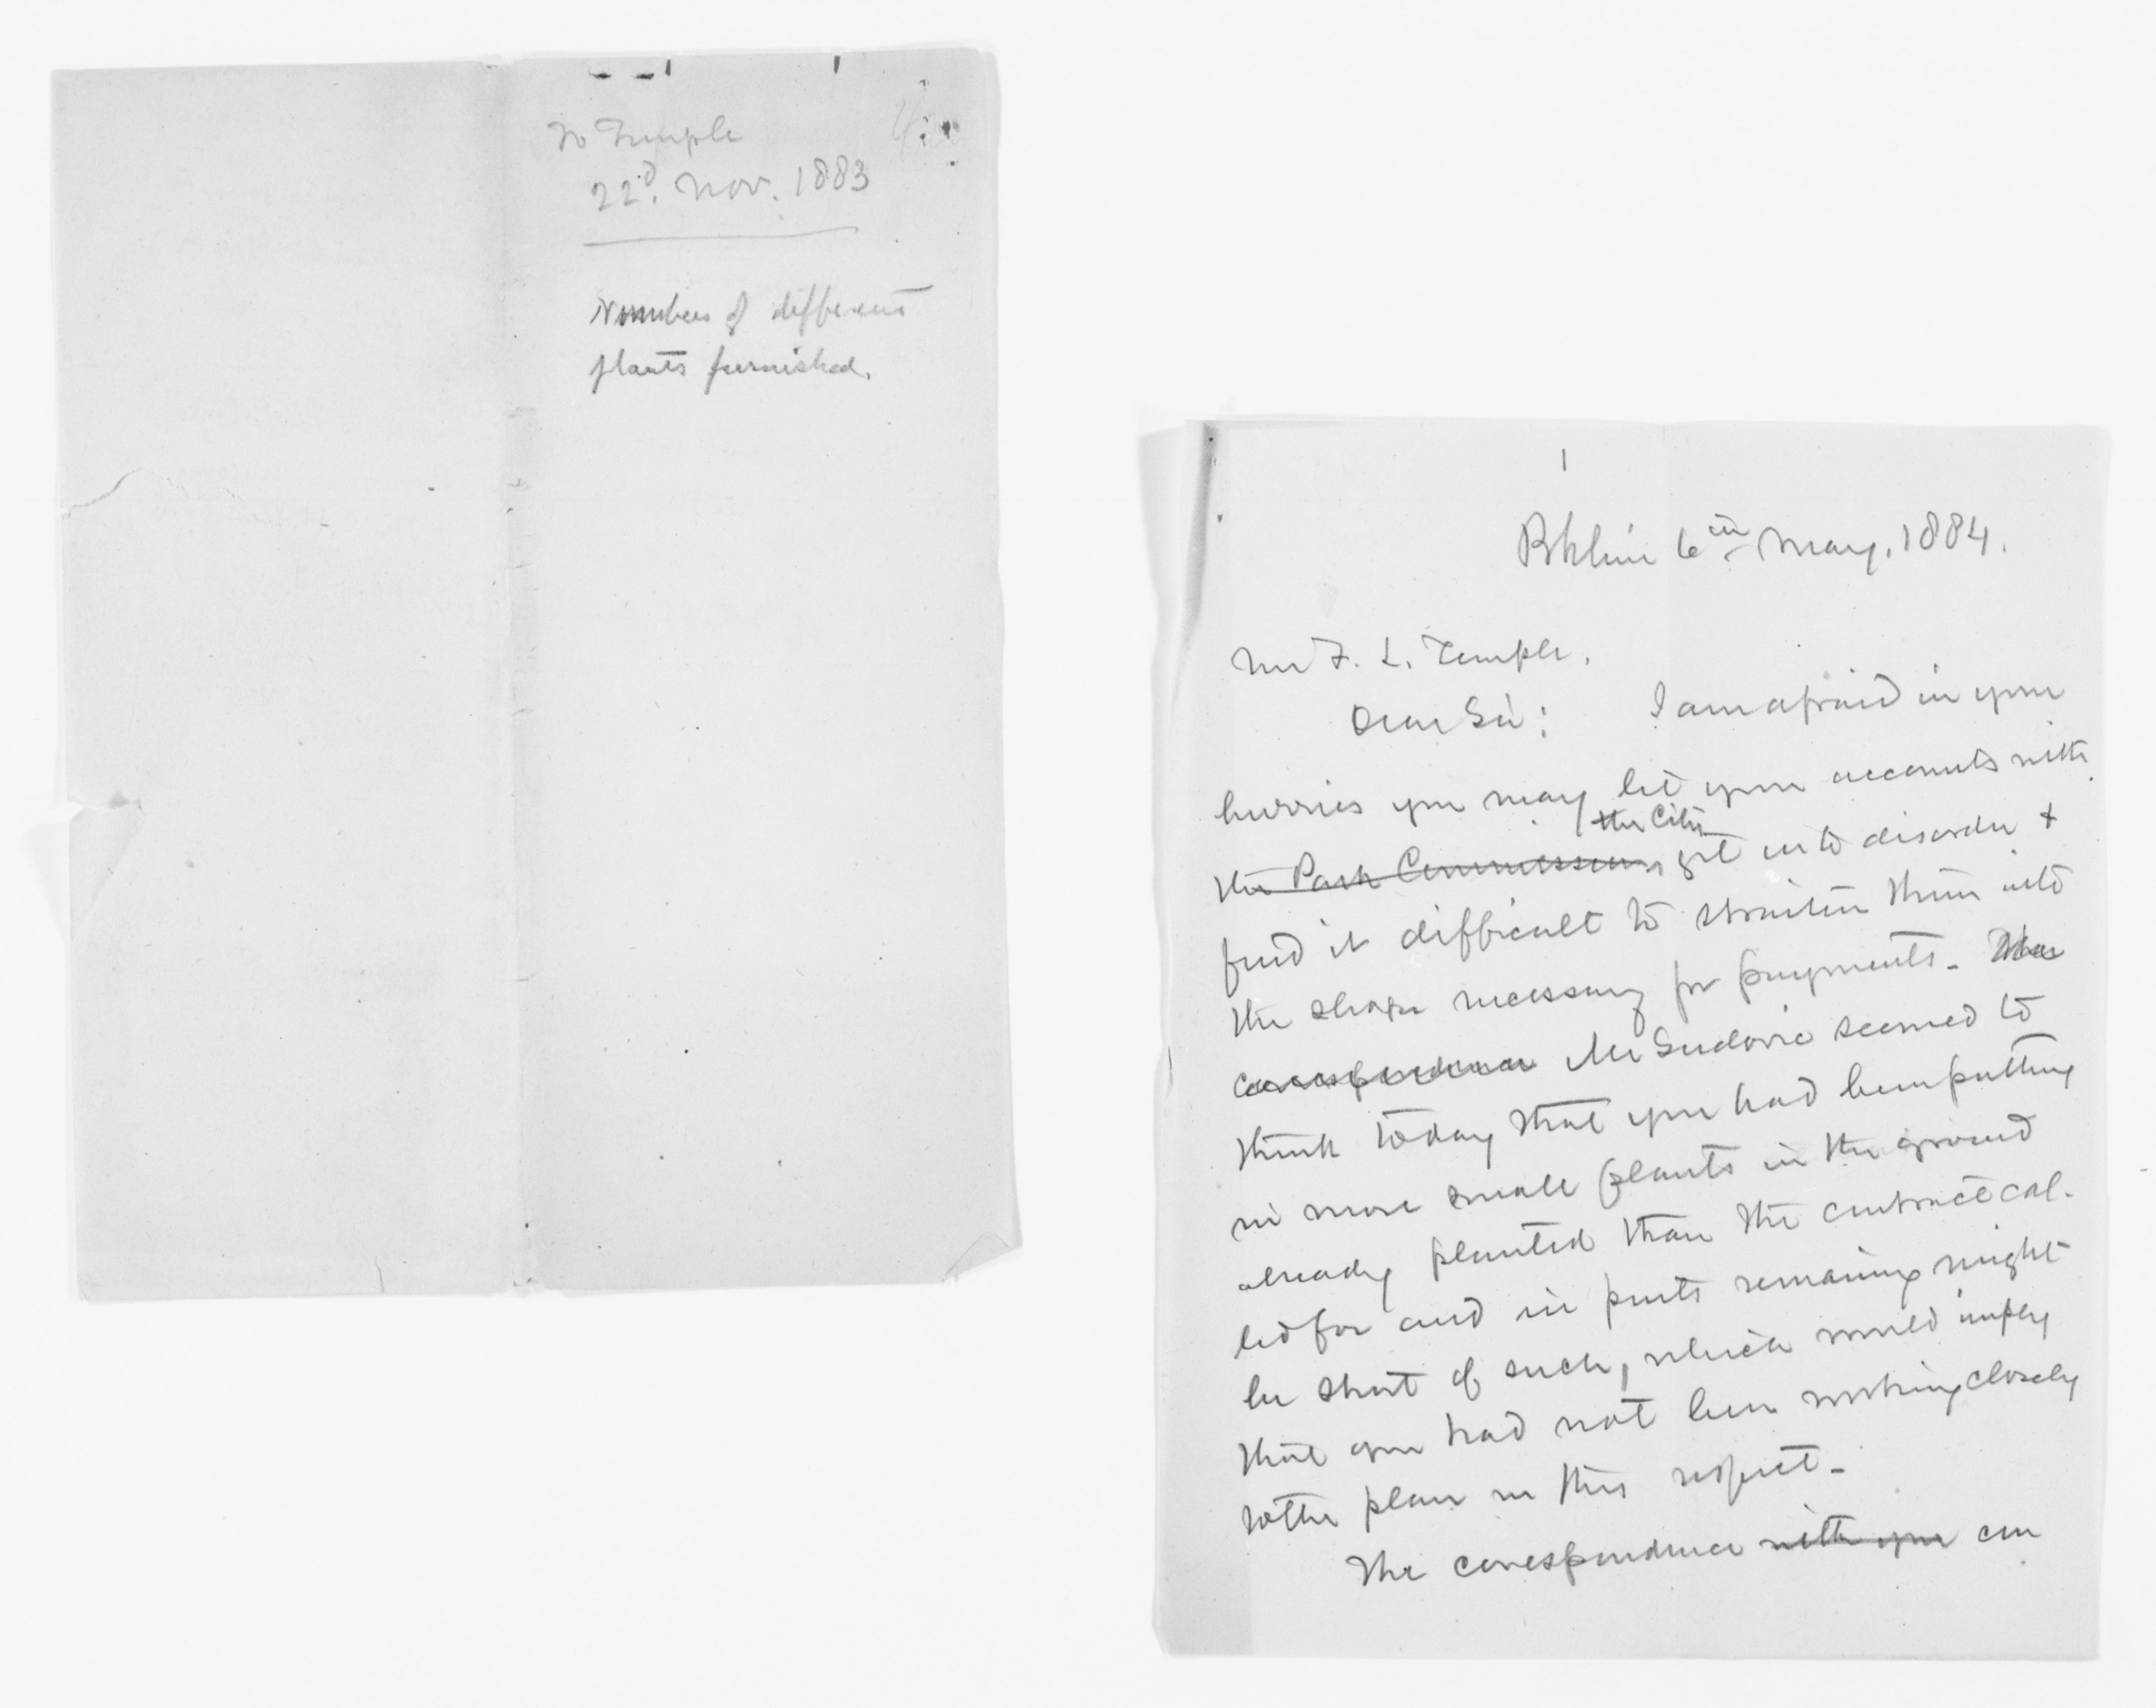 To Temple
22d. Nov. 1883
Numbers of different
plants furnished.
Bkline 6th May, 1884.
Mr F. L. Temple.
Dear Sir: I am afraid in your
hurries you may let your accounts with
the City
the Park Commissioners get into disorder &
find it difficult to straiten them into
the shape necessary for payments. The
correspondence Mr Sudovic seemed to
think today that you had been putting
in more small plants in the ground
already planted than the contract cal-
led for and in parts remaining might
be short of such, which would imply
that you had not been working closely
to the plan in this respect.
The correspondence with you on